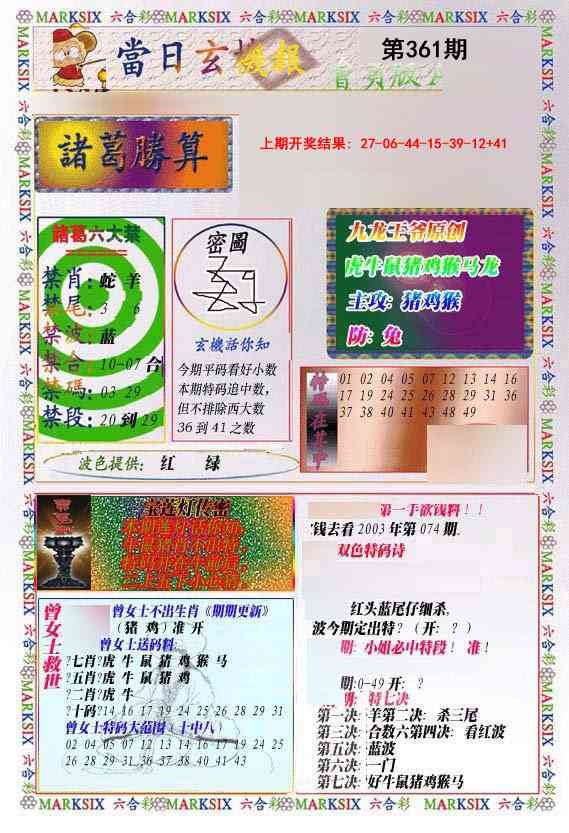 MARKSIX 六合彩 MARKSIX 六合彩 MARKSIX 六合彩 MARKSIX 六合彩 MARKSIX
當日玄機報
第361期
諸葛勝算
上期开奖结果: 27-06-44-15-39-12+41
諸葛六大禁
禁肖: 蛇 羊
禁尾: 3 6
禁波: 蓝
禁合: 10-07 合
禁碼: 03 29
禁段: 20 到 29
密圖
玄機話你知
今期平码看好小数
本期特码追中数，
但不排除西大数
36 到 41 之数
九龙王爷原创
虎牛鼠猪鸡猴马龙
主攻: 猪鸡猴
防: 兔
特码在其中
01 02 04 05 07 12 13 14 16
17 19 24 25 26 28 29 31 36
37 38 40 41 43 48 49
波色提供: 红 绿
宝莲灯传密
曾女士救世
曾女士不出生肖《期期更新》
（猪 鸡）准 开
曾女士送码料:
?七肖?虎 牛 鼠 猪 鸡 猴 马
?五肖?虎 牛 鼠 猪 鸡
?二肖?虎 牛
?十码?14 16 17 19 24 25 26 28 29 31
曾女士特码大范围（十中八）
02 04 05 07 12 13 14 16 17 19 24 25
26 28 29 31 36 37 38 40 41 43
第一手欲钱料！！
钱去看 2003 年第 074 期.
双色特码诗
红头蓝尾仔细杀,
波今期定出特?（开: ? ）
期: 小姐必中特段！ 准！
期:0-49 开: ?
期: 特七决
第一决: 羊第二决: 杀三尾
第三决: 合数六第四决: 看红波
第五决: 蓝波
第六决: 一门
第七决: 好牛鼠猪鸡猴马
MARKSIX 六合彩 MARKSIX 六合彩 MARKSIX 六合彩 MARKSIX 六合彩 MARKSIX